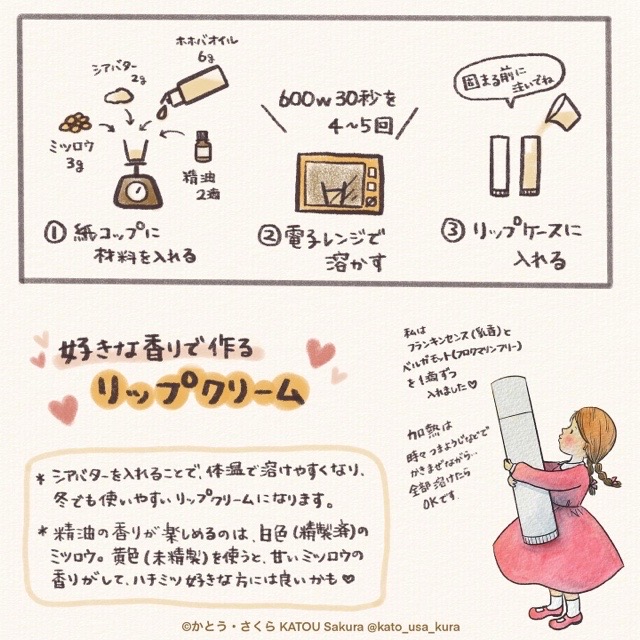 ホホバオイル
6g
シアバター
2g
ミツロウ
3g
精油
2滴
① 紙コップに
材料を入れる
600w 30秒を
4〜5回
② 電子レンジで
溶かす
固まる前に
注いでね
③ リップケースに
入れる
好きな香りで作る
リップクリーム
私は
フランキンセンス(乳香)と
ベルガモット(フロクマリンフリー)
を1滴ずつ
入れました♡
加熱は
時々つまようじなどで
かきまぜながら…
全部溶けたら
OKです
* シアバターを入れることで、体温で溶けやすくなり、
冬でも使いやすいリップクリームになります。
* 精油の香りが楽しめるのは、白色(精製済)の
ミツロウ。黄色(未精製)を使うと、甘いミツロウの
香りがして、ハチミツ好きな方には良いかも♥
©かとう・さくら KATOU Sakura @kato_usa_kura